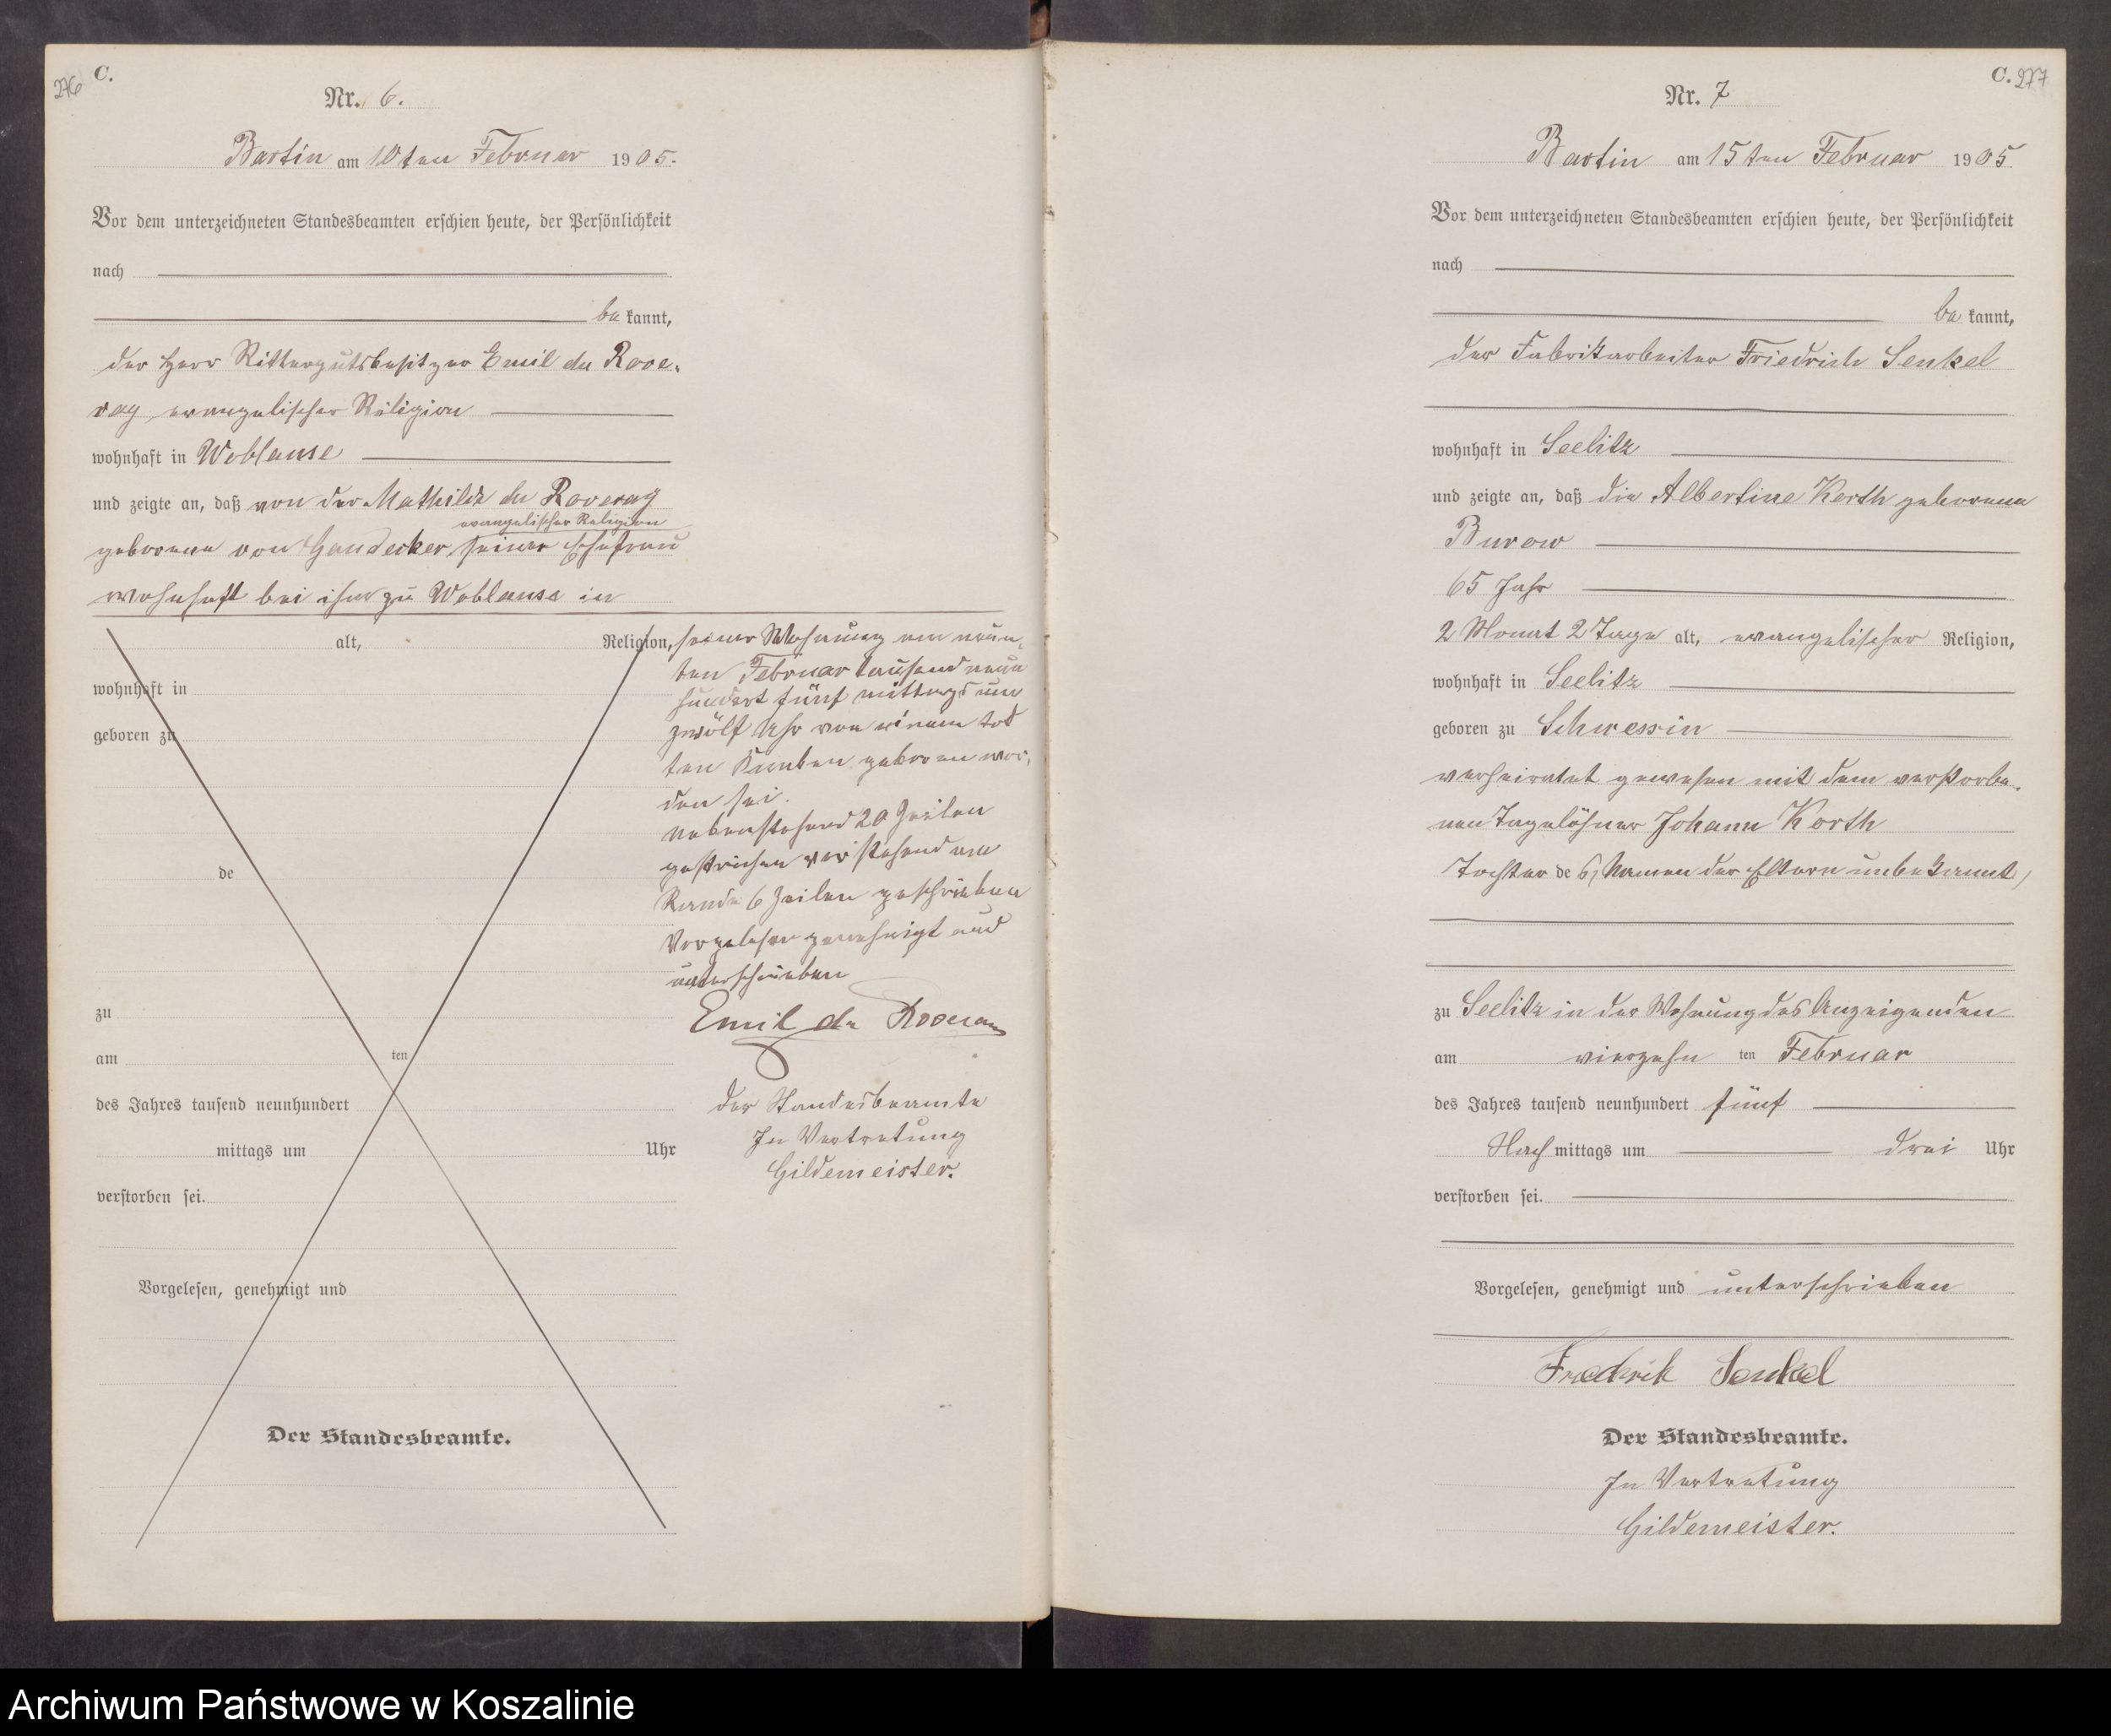 276
C.
Nr. 6.
Bartin am 10ten Februar 1905.
Vor dem unterzeichneten Standesbeamten erschien heute, der Persönlichkeit
nach
be kannt,
der Herr Rittergutsbesitzer Emil du Rove-
ray evangelischer Religion
wohnhaft in Woblanse
und zeigte an, daß von der Mathilde du Roveray
evangelischer Religion
geborene von Gaudecker, seiner Ehefrau
wohnhaft bei ihm zu Woblanse in
alt, Religion,
wohnhaft in
geboren zu
de
zu
am ten
des Jahres tausend neunhundert
mittags um Uhr
verstorben sei.
Vorgelesen, genehmigt und
Der Standesbeamte.
seiner Wohnung am neun-
ten Februar tausend neun
hundert fünf mittags um
zwölf Uhr von einem tod
ten Knaben geboren wor-
den sei.
Nebenstehend 20 Zeilen
gestrichen vorstehend am
Rande 6 Zeilen geschrieben
Vorgelesen genehmigt und
unterschrieben
Emil du Roveray
Der Standesbeamte
In Vertretung
Gildemeister.
C. 277
Nr. 7
Bartin am 15ten Februar 1905
Vor dem unterzeichneten Standesbeamten erschien heute, der Persönlichkeit
nach
be kannt,
der Fabrikarbeiter Friedrich Senkel
wohnhaft in Seelitz
und zeigte an, daß die Albertine Korth geborene
Burow
65 Jahr
2 Monat 2 Tage alt, evangelischer Religion,
wohnhaft in Seelitz
geboren zu Schwessin
verheiratet gewesen mit dem verstorbe-
nen Tagelöhner Johann Korth
Tochter de s, Namen der Eltern unbekannt,
zu Seelitz in der Wohnung des Anzeigenden
am vierzehn ten Februar
des Jahres tausend neunhundert fünf
Nach mittags um drei Uhr
verstorben sei.
Vorgelesen, genehmigt und unterschrieben
Fredrik Senkel
Der Standesbeamte.
In Vertretung
Gildemeister.
Archiwum Państwowe w Koszalinie